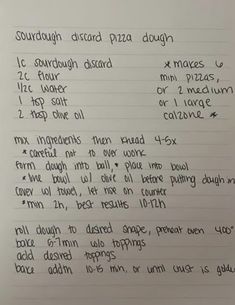 sourdough discard pizza dough
1c sourdough discard *makes 6
2c flour mini pizzas,
1/2c water or 2 medium
1 tsp salt or 1 large
2 tbsp olive oil calzone *
mix ingredients then knead 4-5x
*careful not to over work
form dough into ball, * place into bowl
*line bowl w/ olive oil before putting dough in
cover w/ towel, let rise on counter
*min 2h, best results 10-12h
roll dough to desired shape, preheat oven 400°
bake 5-7min w/o toppings
add desired toppings
bake addtn 10-15 min, or until crust is golde